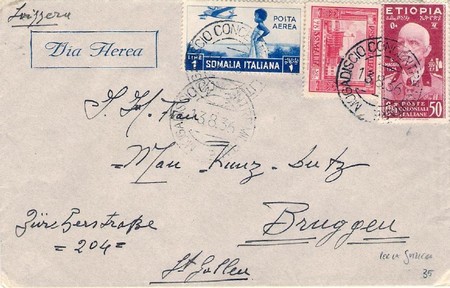 Svizzera
Via Aerea
POSTA
AEREA
LIRE
1
SOMALIA ITALIANA
ETIOPIA
POSTE
COLONIALI
ITALIANE
50
MOGADISCIO
13.8.36
MOGADISCIO
13.8.36
Frau
Max Kunz-Lutz
Zürcherstraße
=204=
Bruggen
St. Gallen
35